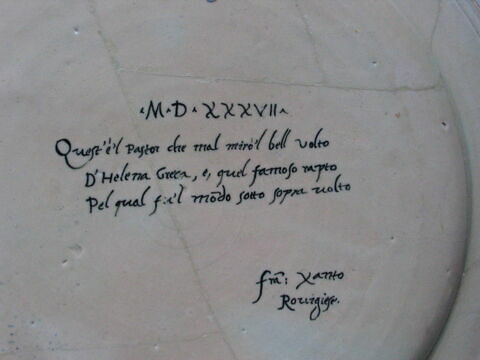 ·M·D·XXXVII·
Quest'è'l Pastor che mal mirò'l bell volto
D'Helena Greca, e, quel famoso rapto
Pel qual fu'l mõdo sotto sopra volto
frã: Xanto
Rovigiese.